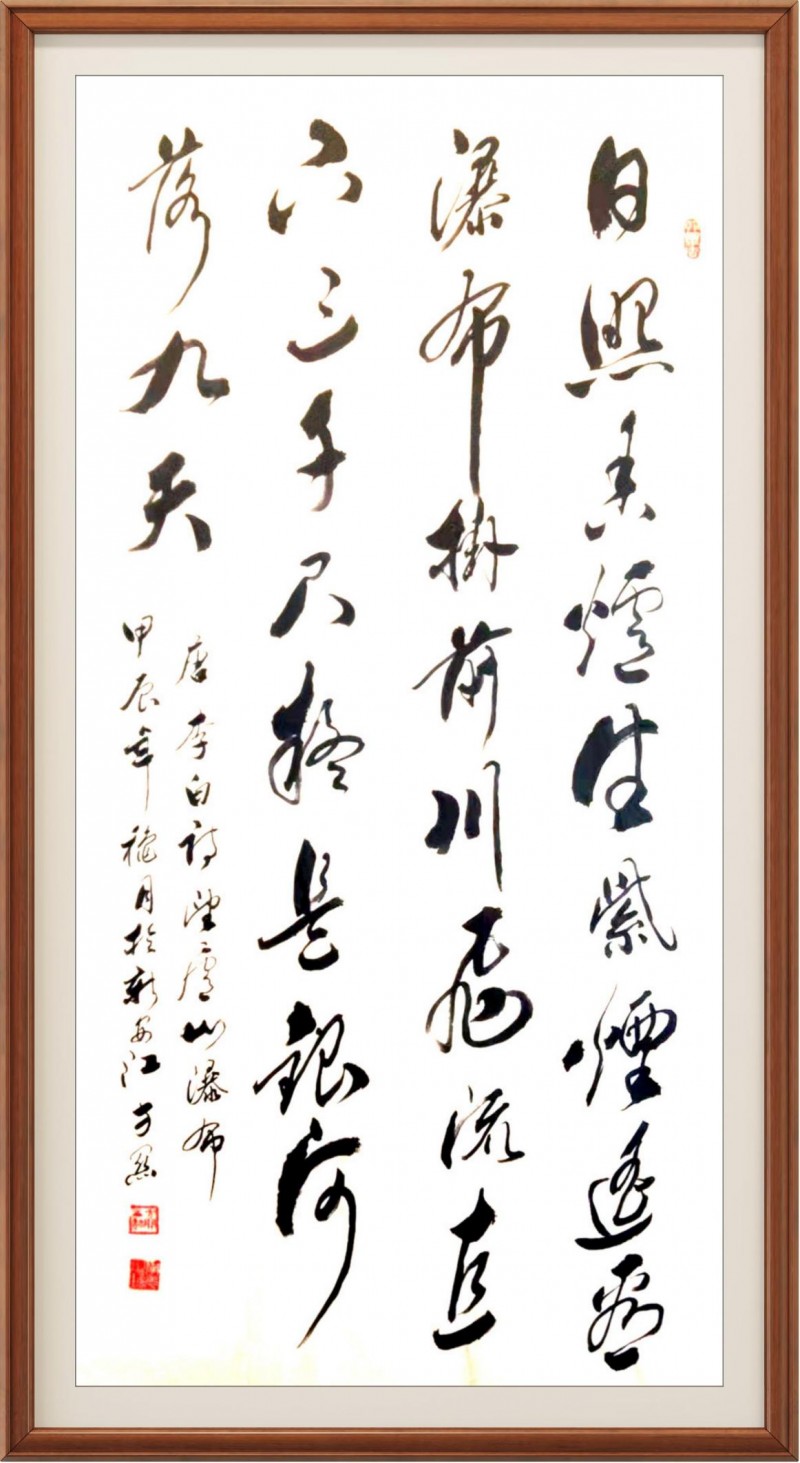 日照香爐生紫煙遙看
瀑布掛前川飛流直
下三千尺疑是銀河
落九天
唐李白詩望廬山瀑布
甲辰年穐月於新安江方